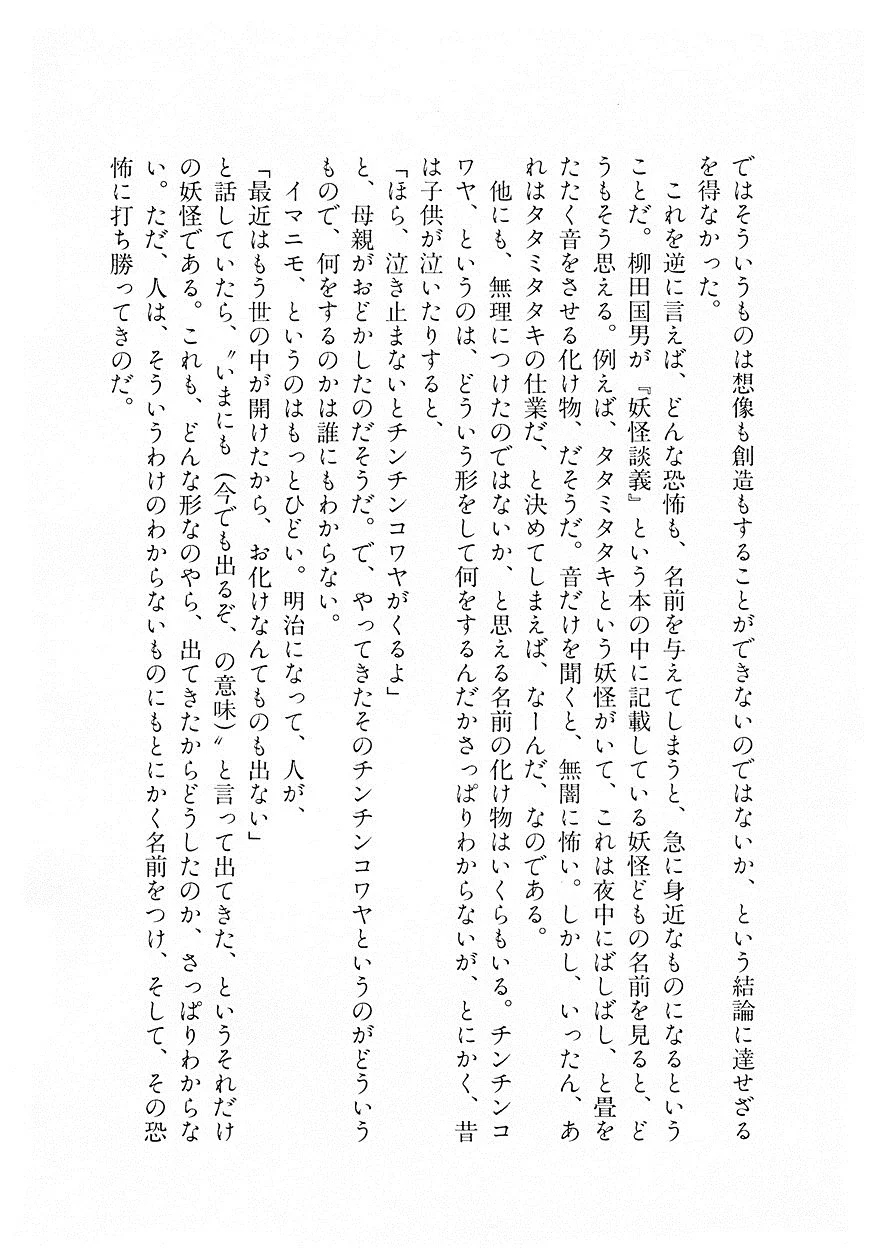 ではそういうものは想像も創造もすることができないのではないか、という結論に達せざる
を得なかった。
　これを逆に言えば、どんな恐怖も、名前を与えてしまうと、急に身近なものになるという
ことだ。柳田国男が『妖怪談義』という本の中に記載している妖怪どもの名前を見ると、ど
うもそう思える。例えば、タタミタタキという妖怪がいて、これは夜中にばしばし、と畳を
たたく音をさせる化け物、だそうだ。音だけを聞くと、無闇に怖い。しかし、いったん、あ
れはタタミタタキの仕業だ、と決めてしまえば、なーんだ、なのである。
　他にも、無理につけたのではないか、と思える名前の化け物はいくらもいる。チンチンコ
ワヤ、というのは、どういう形をして何をするんだかさっぱりわからないが、とにかく、昔
は子供が泣いたりすると、
「ほら、泣き止まないとチンチンコワヤがくるよ」
と、母親がおどかしたのだそうだ。で、やってきたそのチンチンコワヤというのがどういう
もので、何をするのかは誰にもわからない。
　イマニモ、というのはもっとひどい。明治になって、人が、
「最近はもう世の中が開けたから、お化けなんてものも出ない」
と話していたら、〝いまにも（今でも出るぞ、の意味）〟と言って出てきた、というそれだけ
の妖怪である。これも、どんな形なのやら、出てきたからどうしたのか、さっぱりわからな
い。ただ、人は、そういうわけのわからないものにもとにかく名前をつけ、そして、その恐
怖に打ち勝ってきのだ。